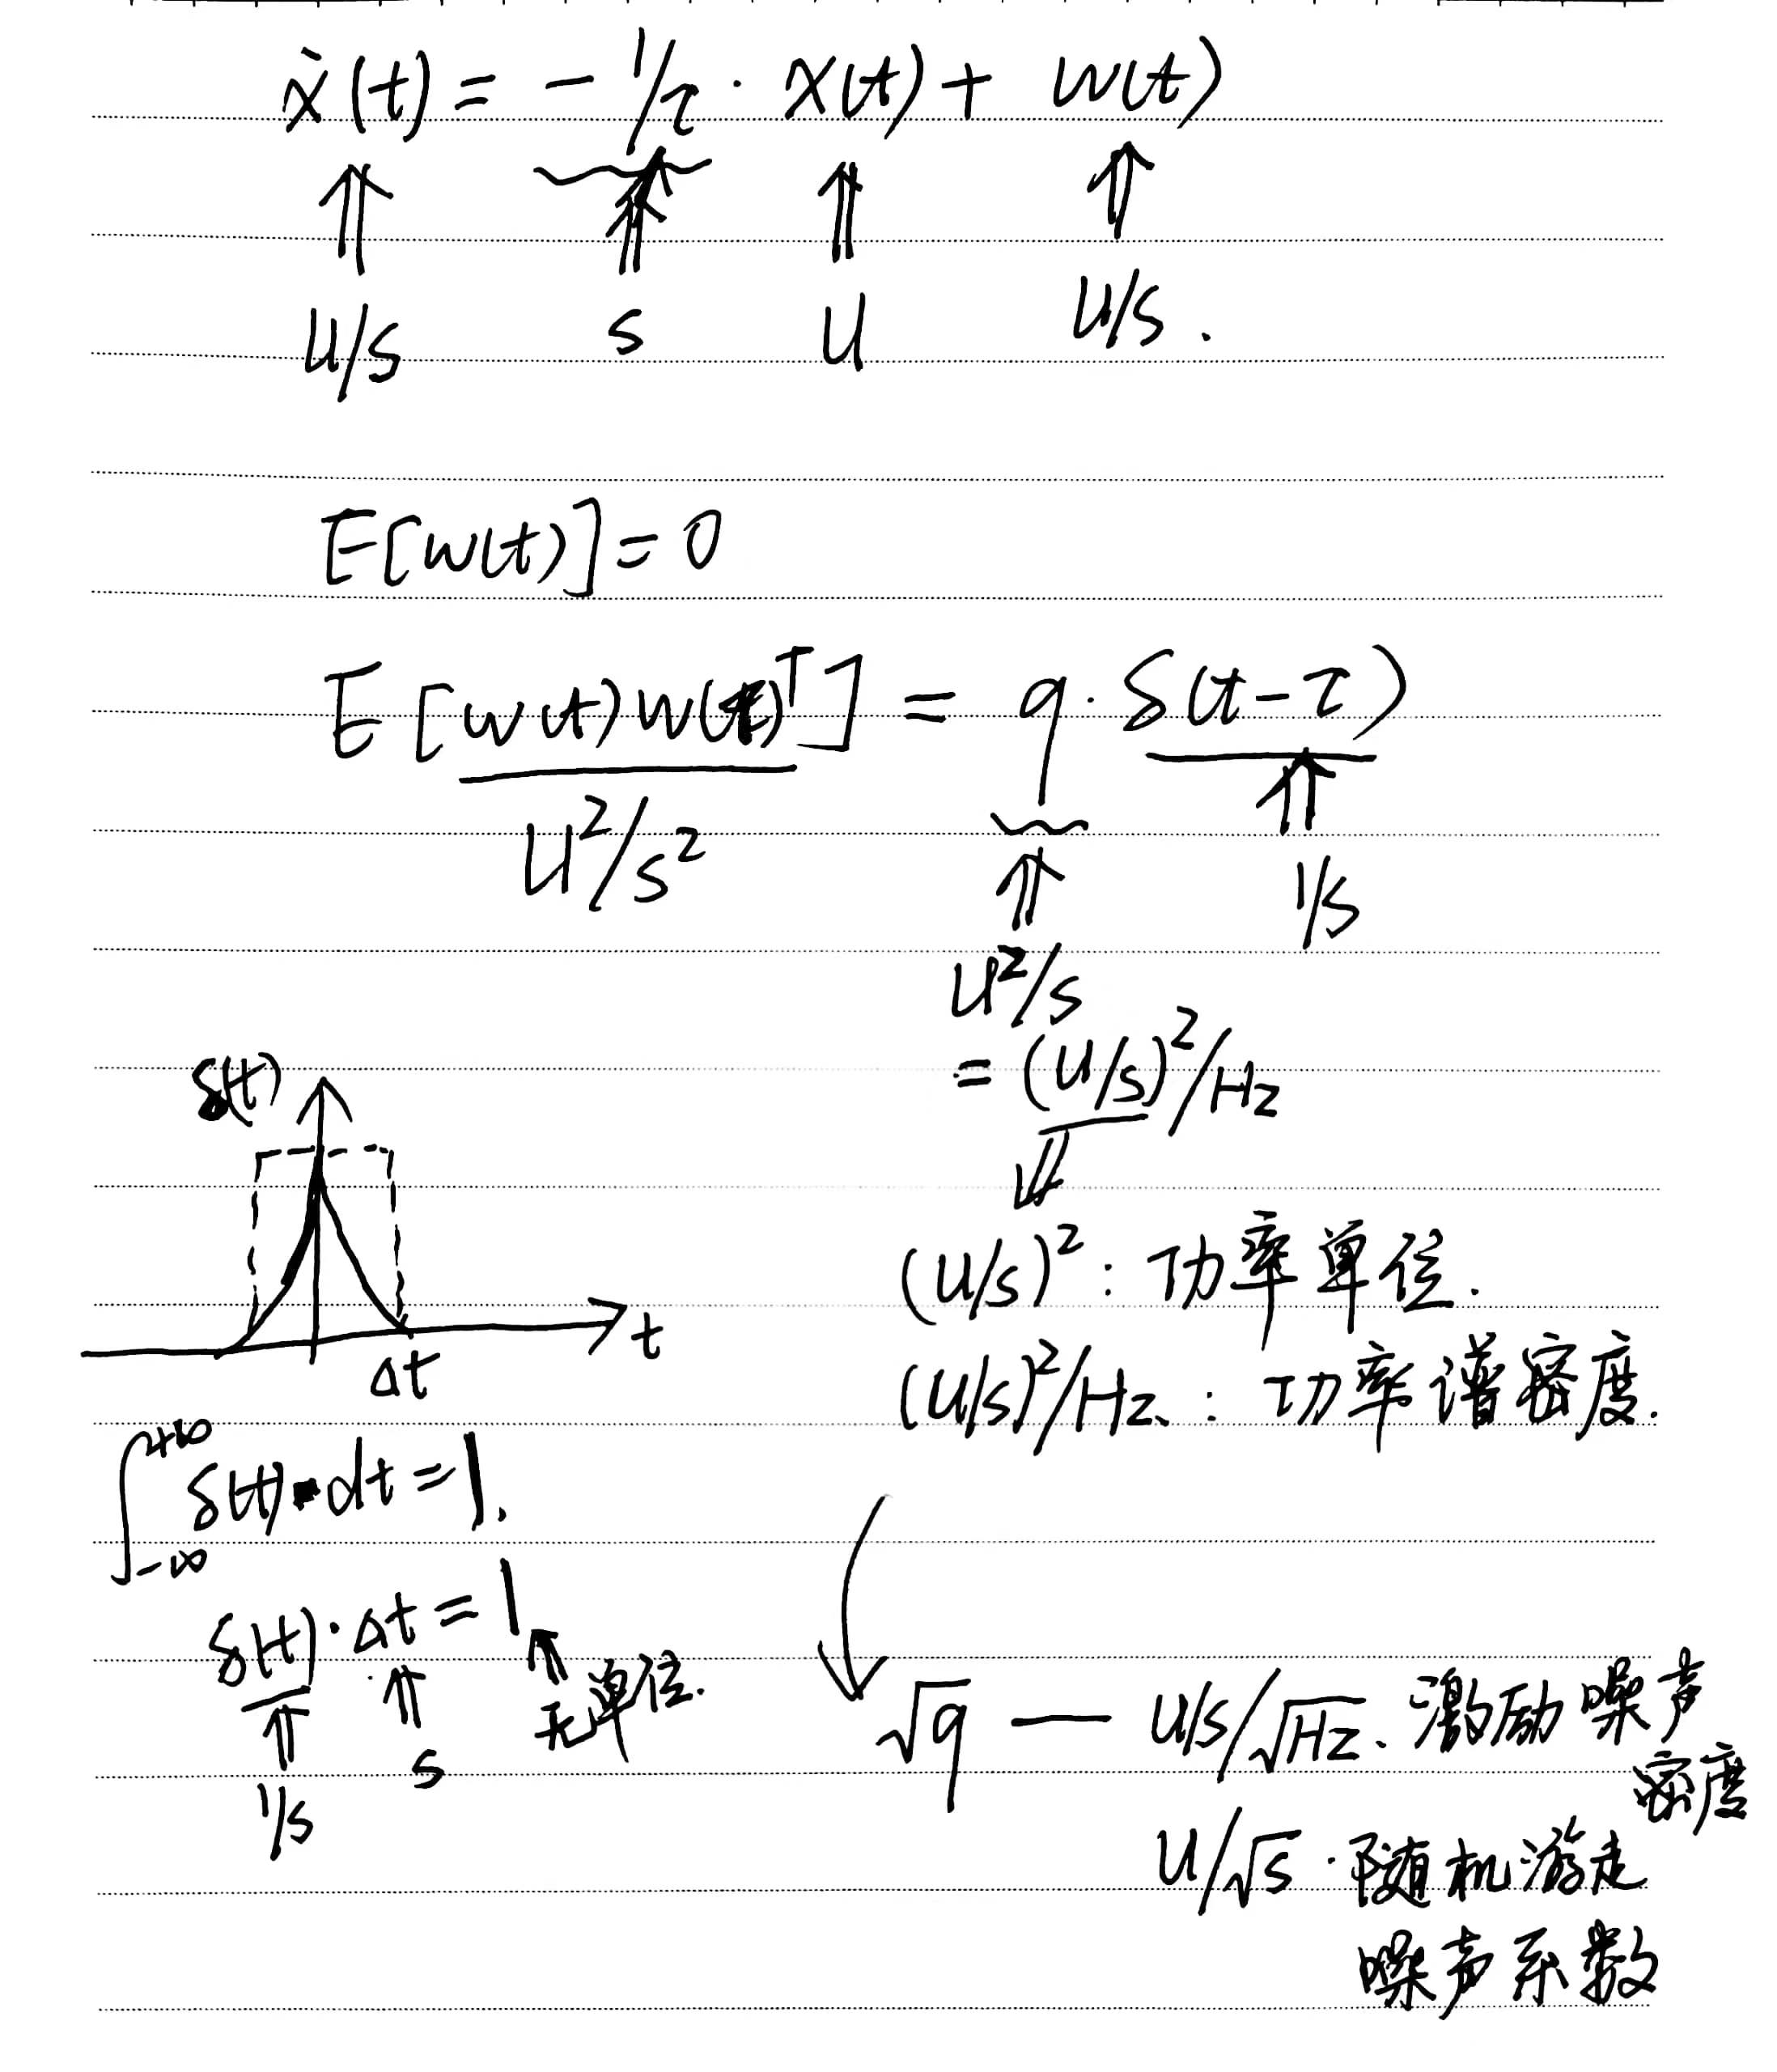 ẋ(t) = - 1/τ · x(t) + w(t)
U/s s U U/s.
E[w(t)] = 0
E[w(t)w(τ)ᵀ] = q · δ(t-τ)
U²/s² 1/s
U²/s
= (U/s)²/Hz
(U/s)²: 功率单位.
(U/s)²/Hz、: 功率谱密度.
δ(t)
t
Δt
∫₋∞⁺∞ δ(t)·dt = 1.
δ(t)·Δt = 1
无单位.
1/s s
√q — U/s/√Hz、激励噪声
密度
U/√s · 随机游走
噪声系数